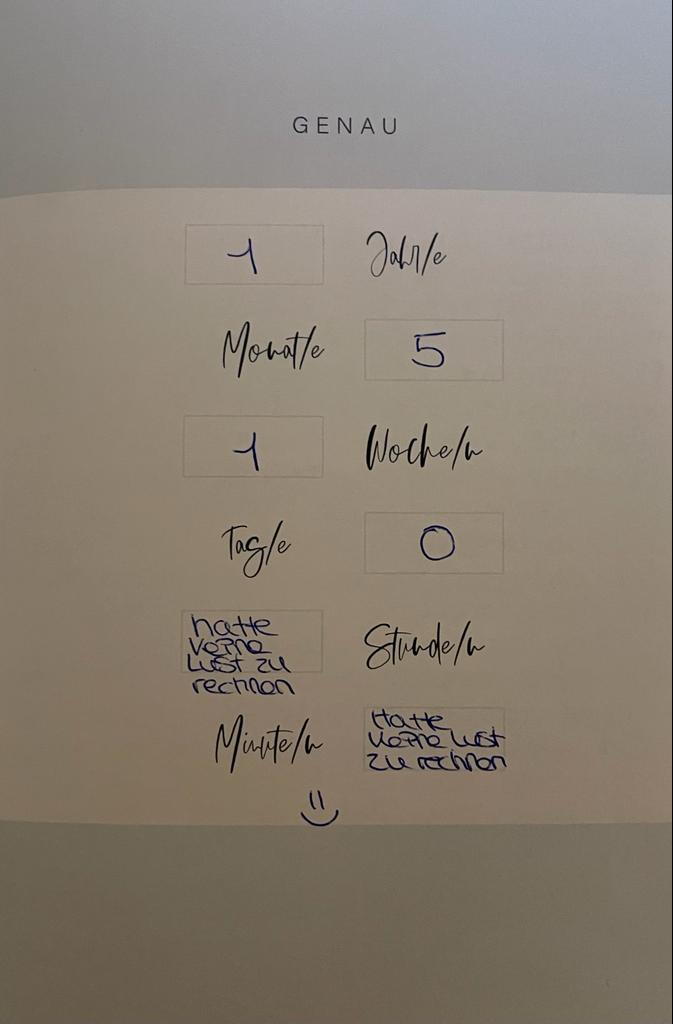 GENAU
1 Jahr/e
Monat/e 5
1 Woche/n
Tag/e 0
hatte
keine
Lust zu
rechnen
Stunde/n
Minute/n
Hatte
keine Lust
zu rechnen